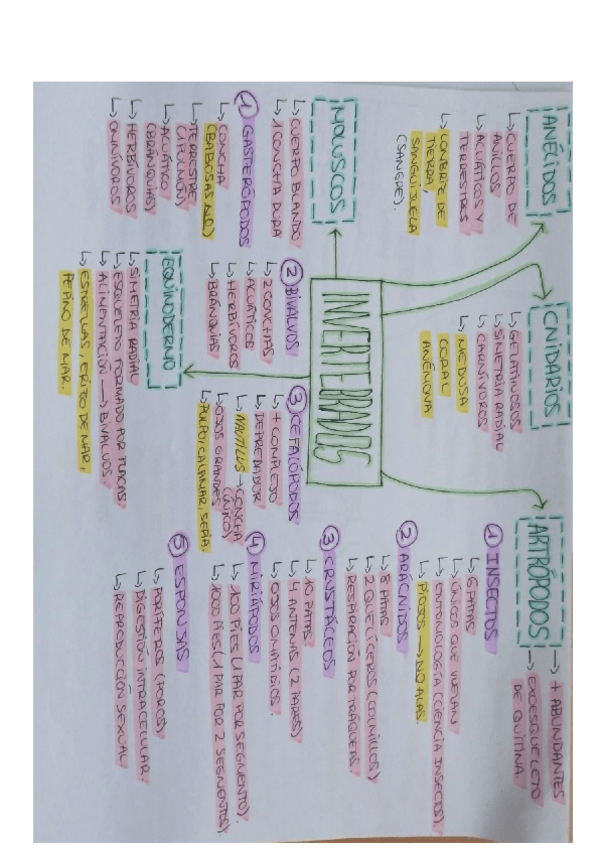 INVERTEBRADOS
ANÉLIDOS
↳ CUERPO DE
ANILLOS
↳ ACUÁTICOS Y
TERRESTRES
↳ LOMBRIZ DE
TIERRA,
SANGUIJUELA
(SANGRE).
CNIDARIOS
↳ GELATINOSOS
↳ SIMETRÍA RADIAL
↳ CARNÍVOROS
↳ MEDUSA
CORAL
ANÉMONA
ARTRÓPODOS
→ + ABUNDANTES
→ EXOESQUELETO
DE QUITINA
① INSECTOS
↳ 6 PATAS
↳ ÚNICOS QUE VUELAN
↳ ENTOMOLOGÍA (CIENCIA INSECTOS)
↳ PIOJOS → NO ALAS.
② ARÁCNIDOS
↳ 8 PATAS
↳ 2 QUELÍCEROS (COLMILLOS)
↳ RESPIRACIÓN POR TRÁQUEAS
③ CRUSTÁCEOS
↳ 10 PATAS
↳ 4 ANTENAS (2 PARES)
↳ OJOS OMATIDIOS.
④ MIRIÁPODOS
↳ 100 PIES (1 PAR POR SEGMENTO).
↳ 1000 PIES (1 PAR POR 2 SEGMENTOS).
⑤ ESPONJAS
↳ PORÍFEROS (POROS)
↳ DIGESTIÓN INTRACELULAR.
↳ REPRODUCCIÓN SEXUAL
MOLUSCOS
↳ CUERPO BLANDO
↳ 1 CONCHA DURA
① GASTERÓPODOS
↳ CONCHA
(BABOSAS NO)
↳ TERRESTRE
(PULMÓN)
↳ ACUÁTICO
(BRANQUIAS)
↳ HERBÍVOROS
↳ OMNÍVOROS
② BIVALVOS
↳ 2 CONCHAS
↳ ACUÁTICOS
↳ HERBÍVOROS
↳ BRANQUIAS
③ CEFALÓPODOS
↳ + COMPLEJO
↳ DEPREDADOR
↳ NAUTILUS → CONCHA
(ÚNICO)
↳ OJOS GRANDES
↳ PULPO, CALAMAR, SEPIA.
EQUINODERMO
↳ SIMETRÍA RADIAL
↳ ESQUELETO FORMADO POR PLACAS
↳ ALIMENTACIÓN → BIVALVOS.
↳ ESTRELLAS, ERIZO DE MAR,
PEPINO DE MAR.